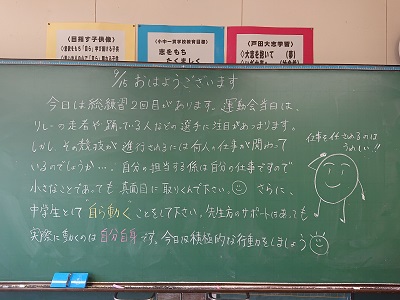 〈目指す子供像〉
〈小中一貫学校教育目標〉
志をもち
たくましく
〈戸田大志学習〉
◇大志を抱いて 〈夢〉
9/15 おはようございます
今日は総練習2回目があります。運動会当日は、
リレーの走者や踊っている人などの選手に注目があつまります。
しかし、その競技が進行されるには何人の仕事が関わって
いるのでしょうか…。自分の担当する係は自分の仕事ですので
小さなことであっても真面目に取りくんで下さい。さらに、
中学生として"自ら動く"ことをして下さい。先生方のサポートはあっても
実際に動くのは自分自身です。今日は積極的な行動をしましょう
仕事を任されるのは
うれしい!!